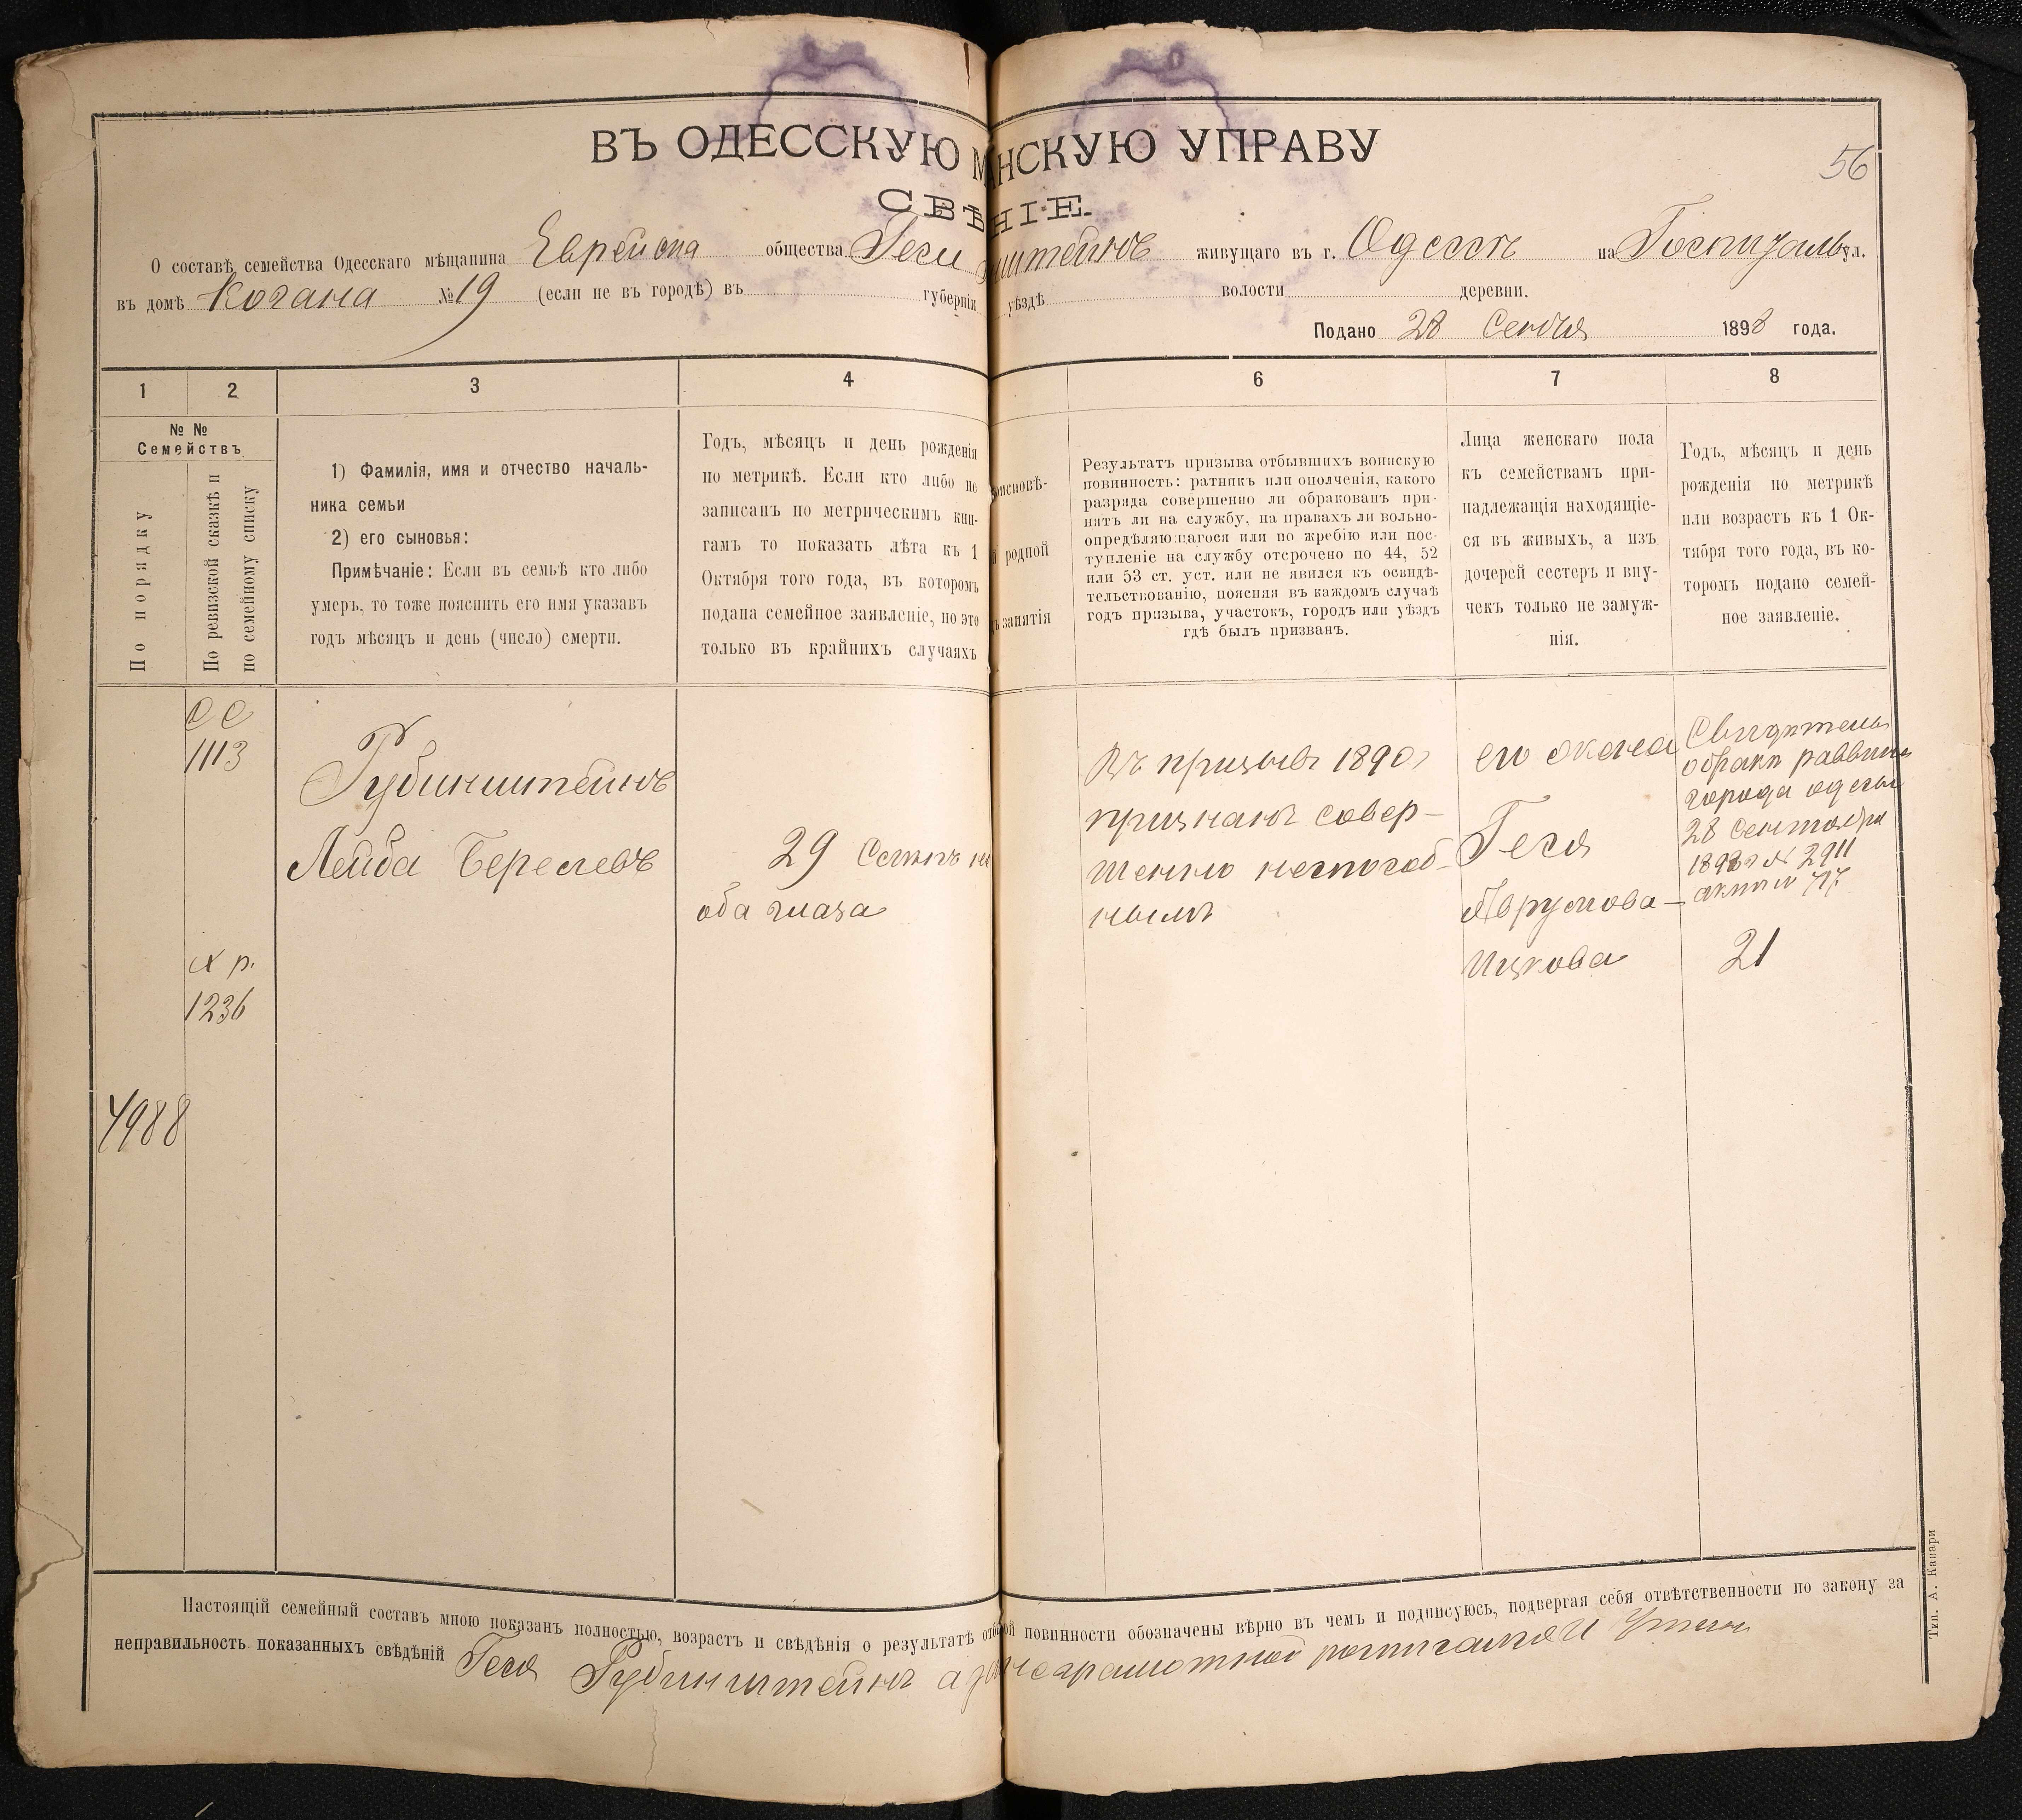 ВЪ ОДЕССКУЮ М НСКУЮ УПРАВУ
56
СВѢ НІЕ.
О составѣ семейства Одесскаго мѣщанина Еврейска общества Геси штейнъ живущаго въ г. Одессѣ на Госпиталь ул.
въ домѣ Когана № 19 (если не въ городѣ) въ губерніи уѣздѣ волости деревни.
Подано 28 Сентя 1898 года.
1 2 3 4 6 7 8
№ №
Семействъ
По порядку
По ревизской сказкѣ и
по семейному списку
1) Фамилія, имя и отчество началь-
ника семьи
2) его сыновья:
Примѣчаніе: Если въ семьѣ кто либо
умеръ, то тоже пояснить его имя указавъ
годъ мѣсяцъ и день (число) смерти.
Годъ, мѣсяцъ и день рожденія
по метрикѣ. Если кто либо не
записанъ по метрическимъ кни-
гамъ то показать лѣта къ 1
Октября того года, въ которомъ
подана семейное заявленіе, но это
только въ крайнихъ случаяхъ
оисповѣ-
родной
занятія
Результатъ призыва отбывшихъ воинскую
повинность: ратникъ или ополченія, какого
разряда совершенно ли обракованъ при-
нятъ ли на службу, на правахъ ли вольно-
опредѣляющагося или по жребію или пос-
тупленіе на службу отсрочено по 44, 52
или 53 ст. уст. или не явился къ освидѣ-
тельствованію, поясняя въ каждомъ случаѣ
годъ призыва, участокъ, городъ или уѣздъ
гдѣ былъ призванъ.
Лица женскаго пола
къ семействамъ при-
надлежащія находящіе-
ся въ живыхъ, а изъ
дочерей сестеръ и вну-
чекъ только не замуж-
нія.
Годъ, мѣсяцъ и день
рожденія по метрикѣ
или возрастъ къ 1 Ок-
тября того года, въ ко-
торомъ подано семей-
ное заявленіе.
СС
1113
Рубинштейнъ
Лейба Берелевъ
29
оба глаза
Въ призывѣ 1890 г
признанъ совер-
шенно неспособ-
нымъ
его жена
Геся
Аврумова-
Ицкова
Свидѣтель
о бракѣ раввина
города Одессы
28 Сентября
1898 г № 2911
21
р.
1236
4988
Настоящій семейный составъ мною показанъ полностью, возрастъ и свѣдѣнія о результатѣ отб ой повинности обозначены вѣрно въ чемъ и подписуюсь, подвергая себя отвѣтственности по закону за
неправильность показанныхъ свѣдѣній Геся Рубинштейнъ а неграмотной росписался
Тип. А. Капари